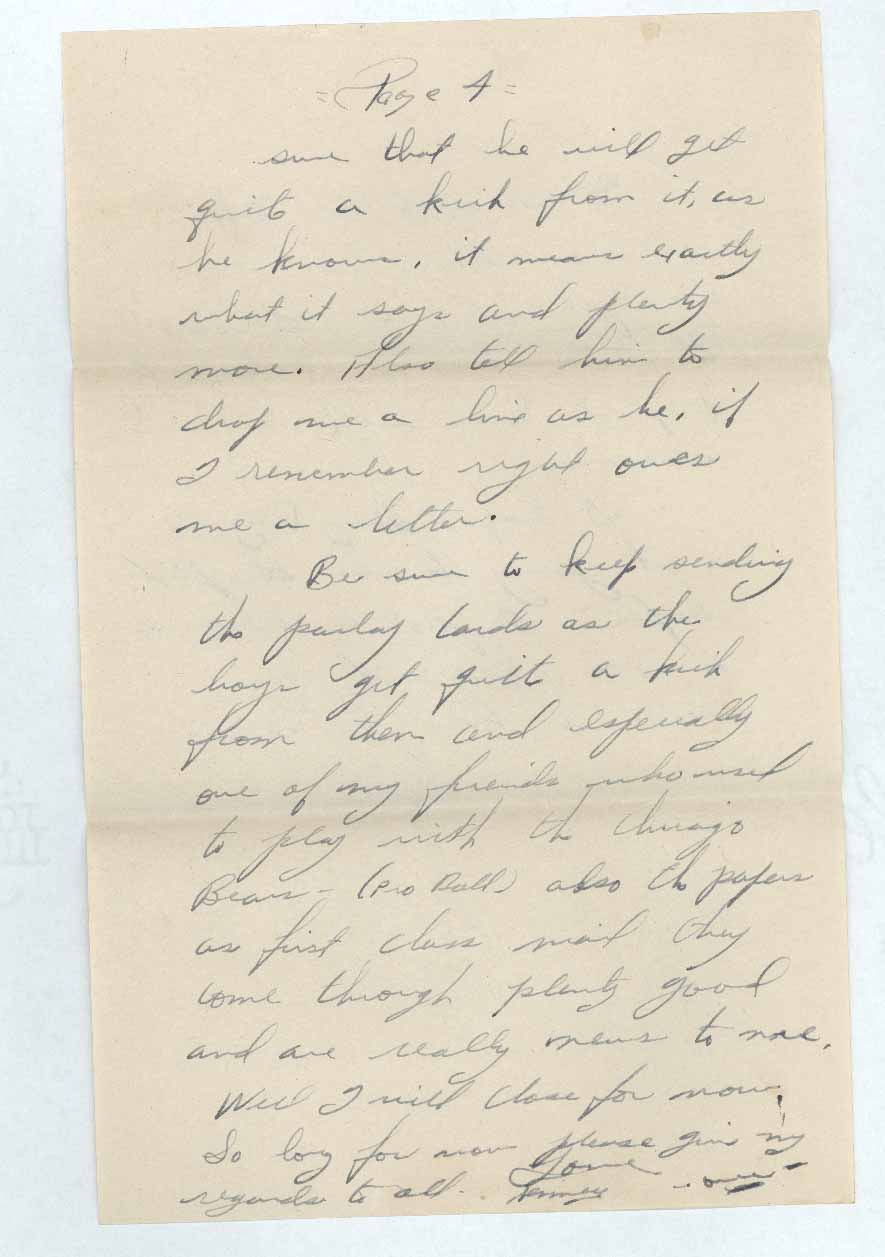 = Page 4 =
sure that he will get
quit a kick from it, as
he knows, it means exactly
what it says and plenty
more. Also tell him to
drop me a line as he, if
I remember right owes
me a letter.
Be sure to keep sending
the parlay cards as the
boys get quit a kick
from them and especially
one of my friends who used
to play with the Chicago
Bears - (Pro Ball) also the papers
as first class mail they
come through plenty good
and are really news to me.
Well I will close for now.
So long for now please give my
regards to all. Love
- over -